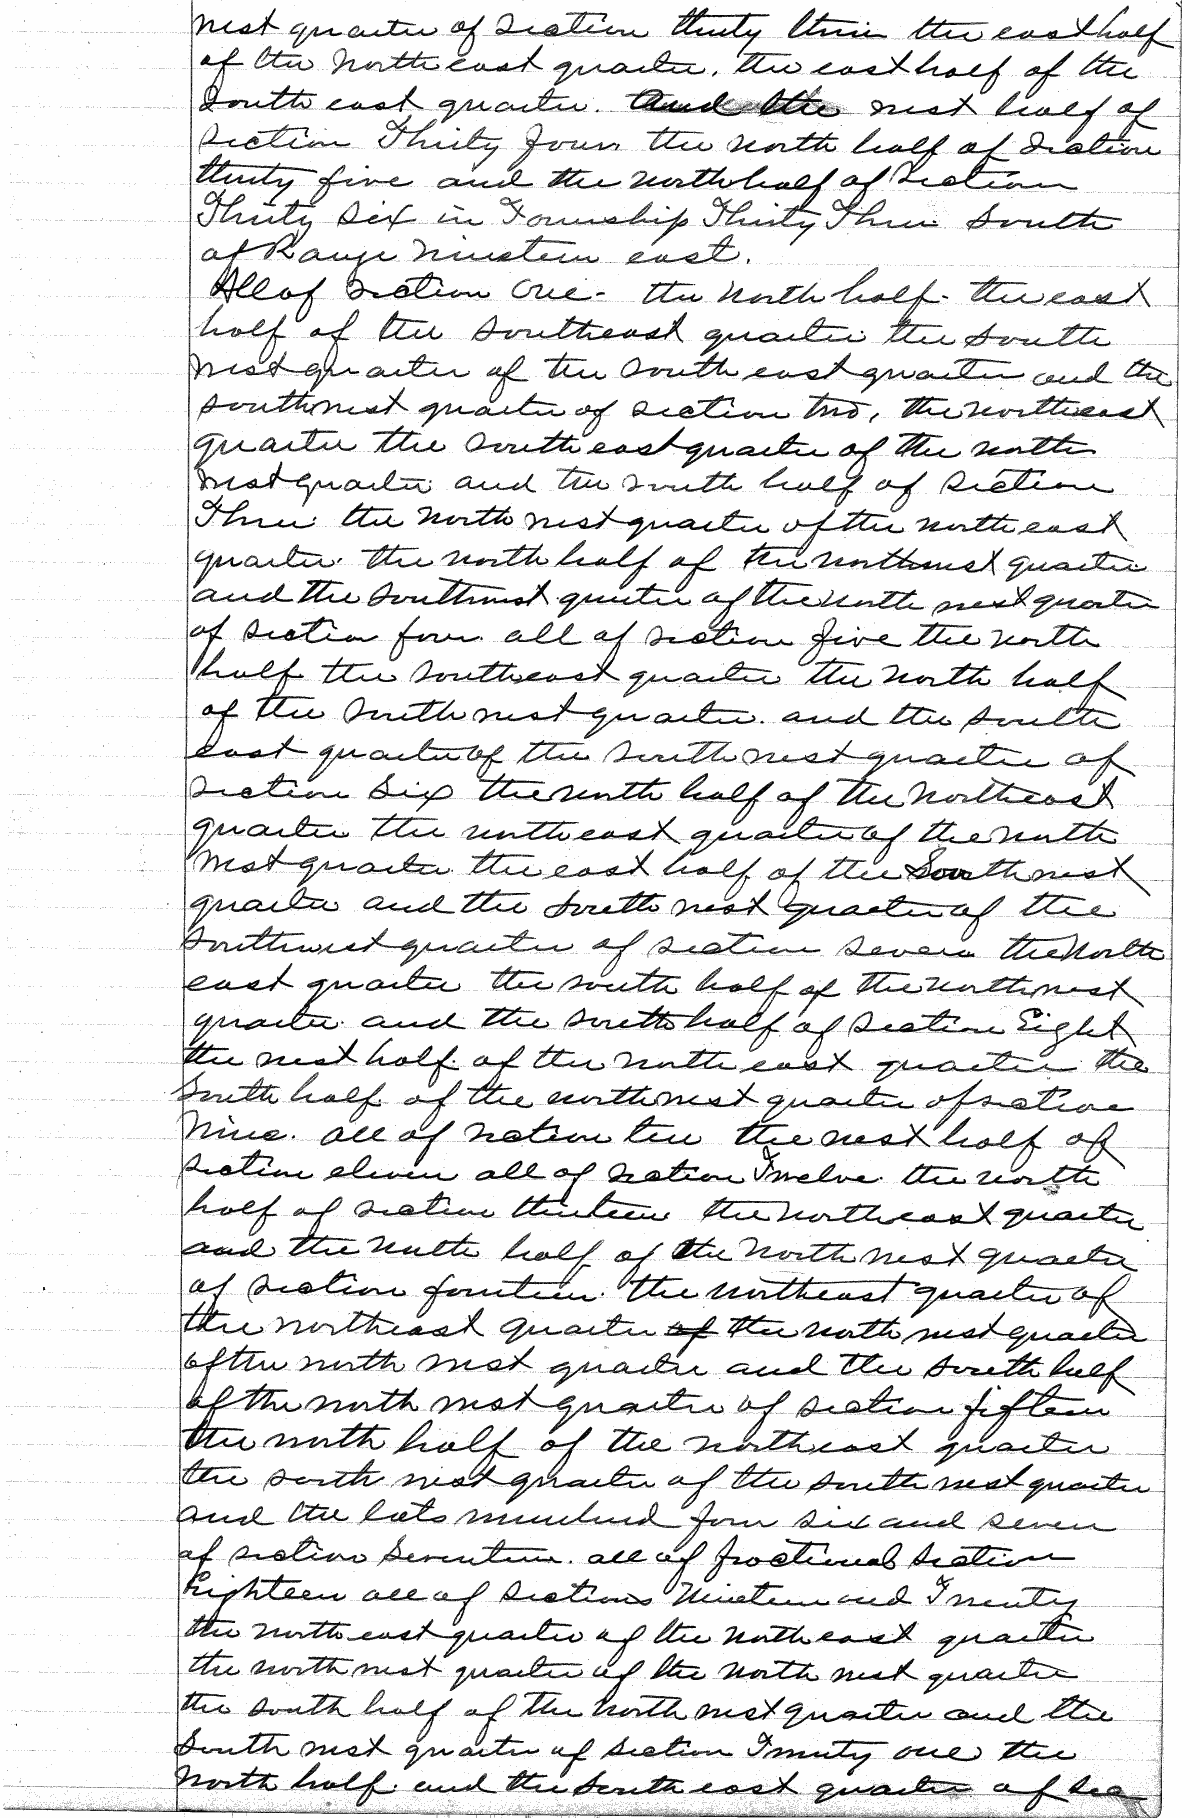 west quarter of Section thirty three the east half
of the North east quarter. the east half of the
South east quarter. And the west half of
section Thirty four the north half of Section
thirty five and the north half of Section
Thirty Six in Township Thirty Three South
of Range Nineteen east.
All of Section One. the North half. the east
half of the Southeast quarter the South
west quarter of the South east quarter and the
southwest quarter of section two, the northeast
quarter the South east quarter of the north
west quarter and the south half of section
Three the North west quarter of the north east
quarter. the north half of the northwest quarter
and the Southwest quarter of the north west quarter
of section four all of section five the north
half the Southeast quarter the North half
of the South west quarter. and the South
east quarter of the South west quarter of
section Six the north half of the Northeast
quarter the north east quarter of the north
west quarter the east half of the South west
quarter and the South west quarter of the
Southwest quarter of section seven the North
east quarter the south half of the North west
quarter and the South half of Section Eight
the west half of the North east quarter the
South half of the northwest quarter of section
Nine. all of section ten the west half of
section eleven all of section Twelve the north
half of section thirteen the northeast quarter
and the North half of the North west quarter
of section fourteen. the northeast quarter of
the northeast quarter of the north west quarter
of the north west quarter and the South half
of the north west quarter of section fifteen
the north half of the northeast quarter
the south west quarter of the South west quarter
and the lots numbered four six and seven
of section Seventeen. all of fractional Section
Eighteen all of Sections Nineteen and Twenty
the north east quarter of the North east quarter
the north west quarter of the North west quarter
the south half of the North west quarter and the
South west quarter of Section Twenty one the
North half. and the South east quarter of Sec